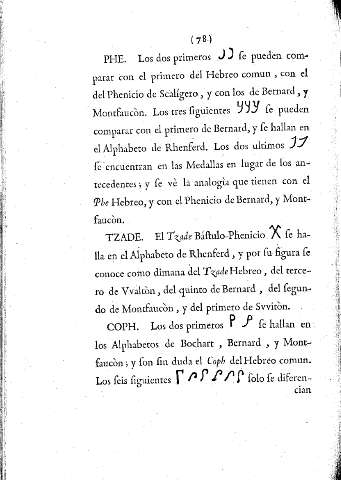 (78)
PHE. Los dos primeros se pueden com-
parar con el primero del Hebreo comun, con el
del Phenicio de Scalígero, y con los de Bernard, y
Montfaucòn. Los tres siguientes se pueden
comparar con el primero de Bernard, y se hallan en
el Alphabeto de Rhenferd. Los dos ultimos
se encuentran en las Medallas en lugar de los an-
tecedentes; y se vè la analogìa que tienen con el
Phe Hebreo, y con el Phenicio de Bernard, y Mont-
faucòn.
TZADE. El Tzade Bástulo-Phenicio se ha-
lla en el Alphabeto de Rhenferd, y por su figura se
conoce como dimana del Tzade Hebreo, del terce-
ro de Vvaltòn, del quinto de Bernard, del segun-
do de Montfaucòn, y del primero de Svvitòn.
COPH. Los dos primeros se hallan en
los Alphabetos de Bochart, Bernard, y Mont-
faucòn; y son sin duda el Coph del Hebreo comun.
Los seis siguientes solo se diferen-
cian